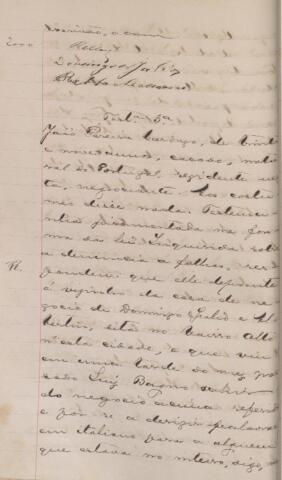 2000
Domingos Julio
Test. 5ª
José Pereira Cardozo, de trinta
e nove annos, casado, natu-
ral de Portugal, residente nes-
ta, negociante. Aos costu-
mes disse nada. Testemu-
nha juramentada na for-
ma da lei. Inquirida sobre
a denuncia a folhas, res-
pondeu: que elle depoente
é vizinho da casa de ne-
gocio de Domingos Julio e Al-
sita no bairro Alto
n'esta cidade, e que viu
em uma tarde do mez pas-
sado Luiz
do negocio acima referi-
do e pôr-se a dirigir palavras
em italiano para a alguem
que estava no interior, digo,